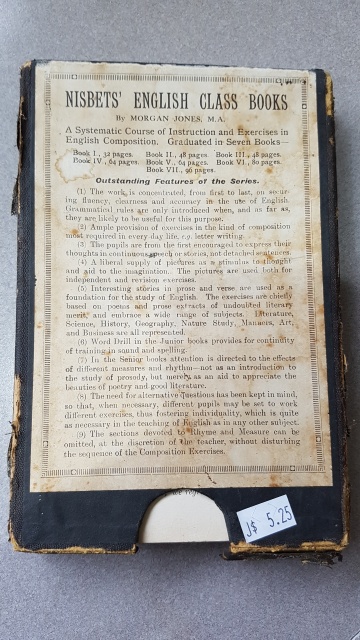 NISBETS' ENGLISH CLASS BOOKS
By MORGAN JONES, M.A.
A Systematic Course of Instruction and Exercises in
English Composition, Graduated in Seven Books—
Book I., 32 pages. Book II., 48 pages. Book III., 48 pages.
Book IV., 64 pages. Book V., 64 pages. Book VI., 80 pages.
Book VII., 96 pages.
Outstanding Features of the Series.
(1) The work is concentrated, from first to last, on secur-
ing fluency, clearness and accuracy in the use of English.
Grammatical rules are only introduced when, and as far as,
they are likely to be useful for this purpose.
2) Ample provision of exercises in the kind of composition
most required in every day life, e.g. letter writing.
(3) The pupils are from the first encouraged to express their
thoughts in continuous speech or stories, not detached sentences.
(4) A liberal supply of pictures as a stimulus to thought
and aid to the imagination. The pictures are used both for
independent and revision exercises.
(5) Interesting stories in prose and verse are used as a
foundation for the study of English. The exercises are chiefly
based on poems and prose extracts of undoubted literary
merit, and embrace a wide range of subjects. Literature,
Science, History, Geography, Nature Study, Manners, Art,
and Business are all represented.
(6) Word Drill in the Junior books provides for continuity
of training in sound and spelling.
(7) In the Senior books attention is directed to the effects
of different measures and rhythm—not as an introduction to
the study of prosody, but merely as an aid to appreciate the
beauties of poetry and good literature.
(8) The need for alternative questions has been kept in mind,
so that, when necessary, different pupils may be set to work
different exercises, thus fostering individuality, which is quite
as necessary in the teaching of English as in any other subject.
(9) The sections devoted to Rhyme and Measure can be
omitted, at the discretion of the teacher, without disturbing
the sequence of the Composition Exercises.
J$ 5.25